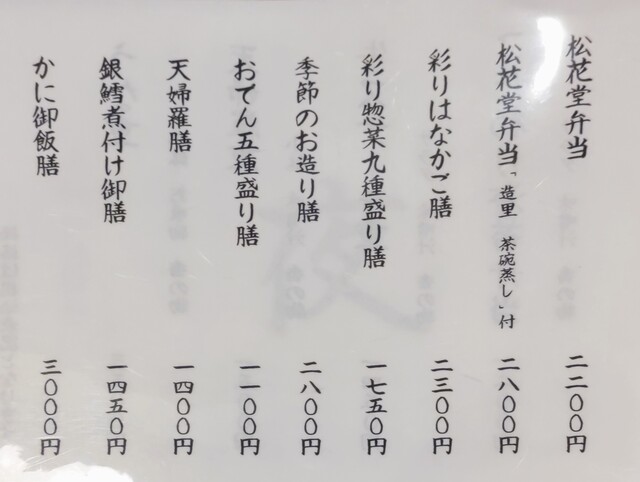 松花堂弁当 二二〇〇円
松花堂弁当「造里 茶碗蒸し」付 二八〇〇円
彩りはなかご膳 二三〇〇円
彩り惣菜九種盛り膳 一七五〇円
季節のお造り膳 二八〇〇円
おでん五種盛り膳 一一〇〇円
天婦羅膳 一四〇〇円
銀鱈煮付け御膳 一四五〇円
かに御飯膳 三〇〇〇円